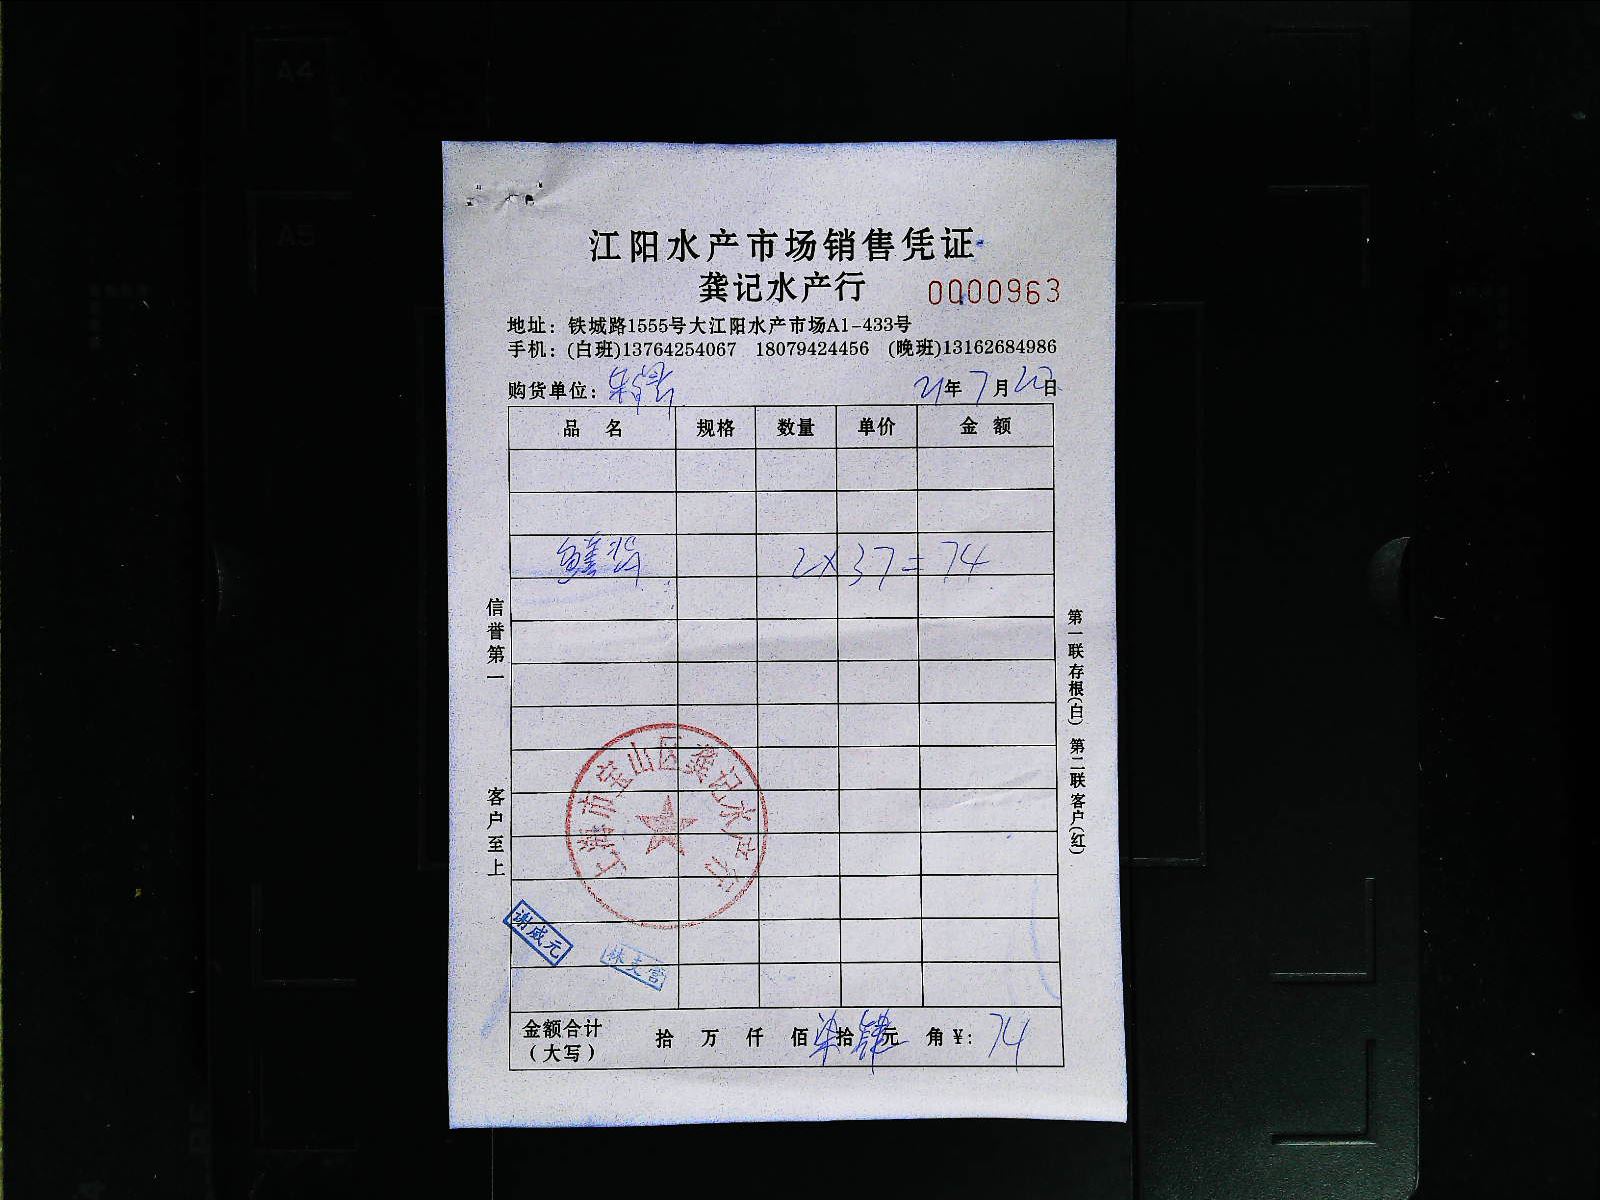 A4
A5
江阳水产市场销售凭证
龚记水产行 0000963
地址：铁城路1555号大江阳水产市场A1-433号
手机：(白班)13764254067 18079424456 (晚班)13162684986
购货单位： 21年7月 日
品名 规格 数量 单价 金额
2×37=74
信誉第一
客户至上
第一联存根(白) 第二联客户(红)
上海市宝山区龚记水产行
谢威元
林支营
金额合计 拾 万 仟 佰 柒拾 肆元 角 ¥: 74
(大写)